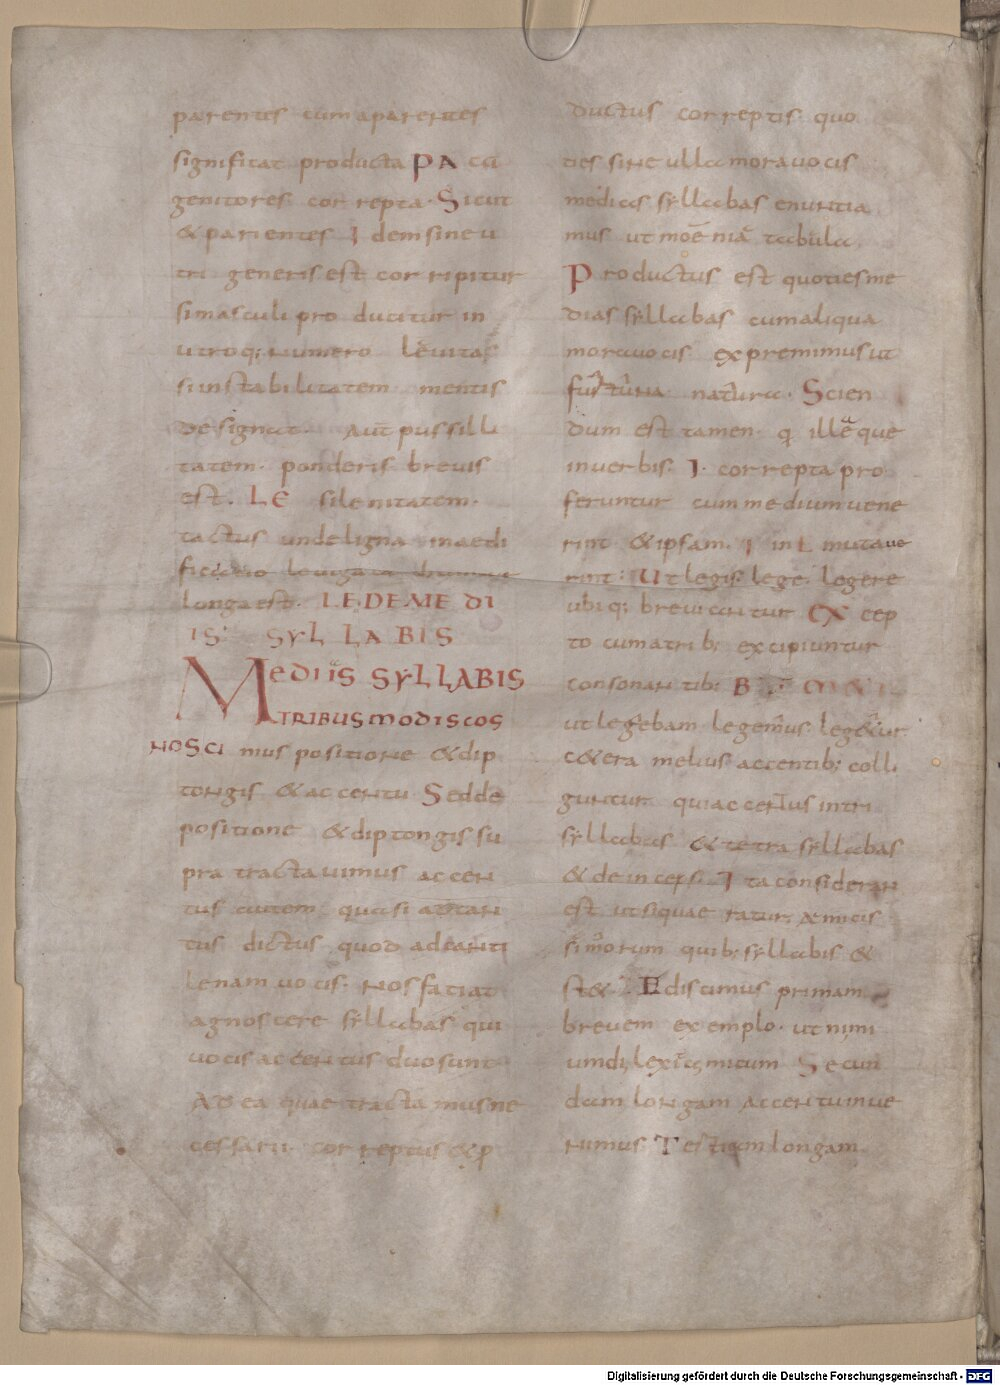 parentes cum aparentes
significat producta PA cū
genitores. correpta. Sicut
& parientes Idem sine u
tri generis est corripitur
si masculi pro ducitur in
utroq; numero levitas
si instabilitatem mentis
designat. Aut pussilli
tatem. ponderis brevis
est. LE si lenitatem.
tactus unde ligna in aedi
ficatio
longa est. LEDEMEDI
IS: SYLLABIS
Mediis SYLLABIS
TRIBUS MODIS COG
NOSCI mus positione & dip
tongis & accentu Sed de
positione & diptongis su
pra tractavimus accen
tus autem quasi adcan
tus dictus quod ad canti
lenam vocis. nos faciat
agnoscere syllabas qui
vocis accentus duo sunt
AD ea quae tractamus ne
cessarii. correptus & p
ductus correptis quo
ties sine ulla mora vocis
medias syllabas enuntia
mus ut moenia tabula
Productus est quoties me
dias syllabas cum aliqua
mora vocis expremimus ut
natura. Scien
dum est tamen q illae que
in verbis. I. correpta pro
feruntur cum medium vene
rint & ipsam I in L muta ue
rint: Ut legis lege legere
ubiq; breviantur EX cep
to cum a trib; excipiuntur
consonantib; B
ut legebam legemus legetur
cetera melius accentib; colli
guntur quia accentus in tri
syllabas & tetra syllabas
& deinceps. Ita consideran
est ut si quaeratur amicis
simorum quib; syllabis &
st& Ediscimus primam
brevem exemplo. ut nimi
um Secun
dam longam accentu inve
nimus Tertiam longam
Digitalisierung gefördert durch die Deutsche Forschungsgemeinschaft - DFG